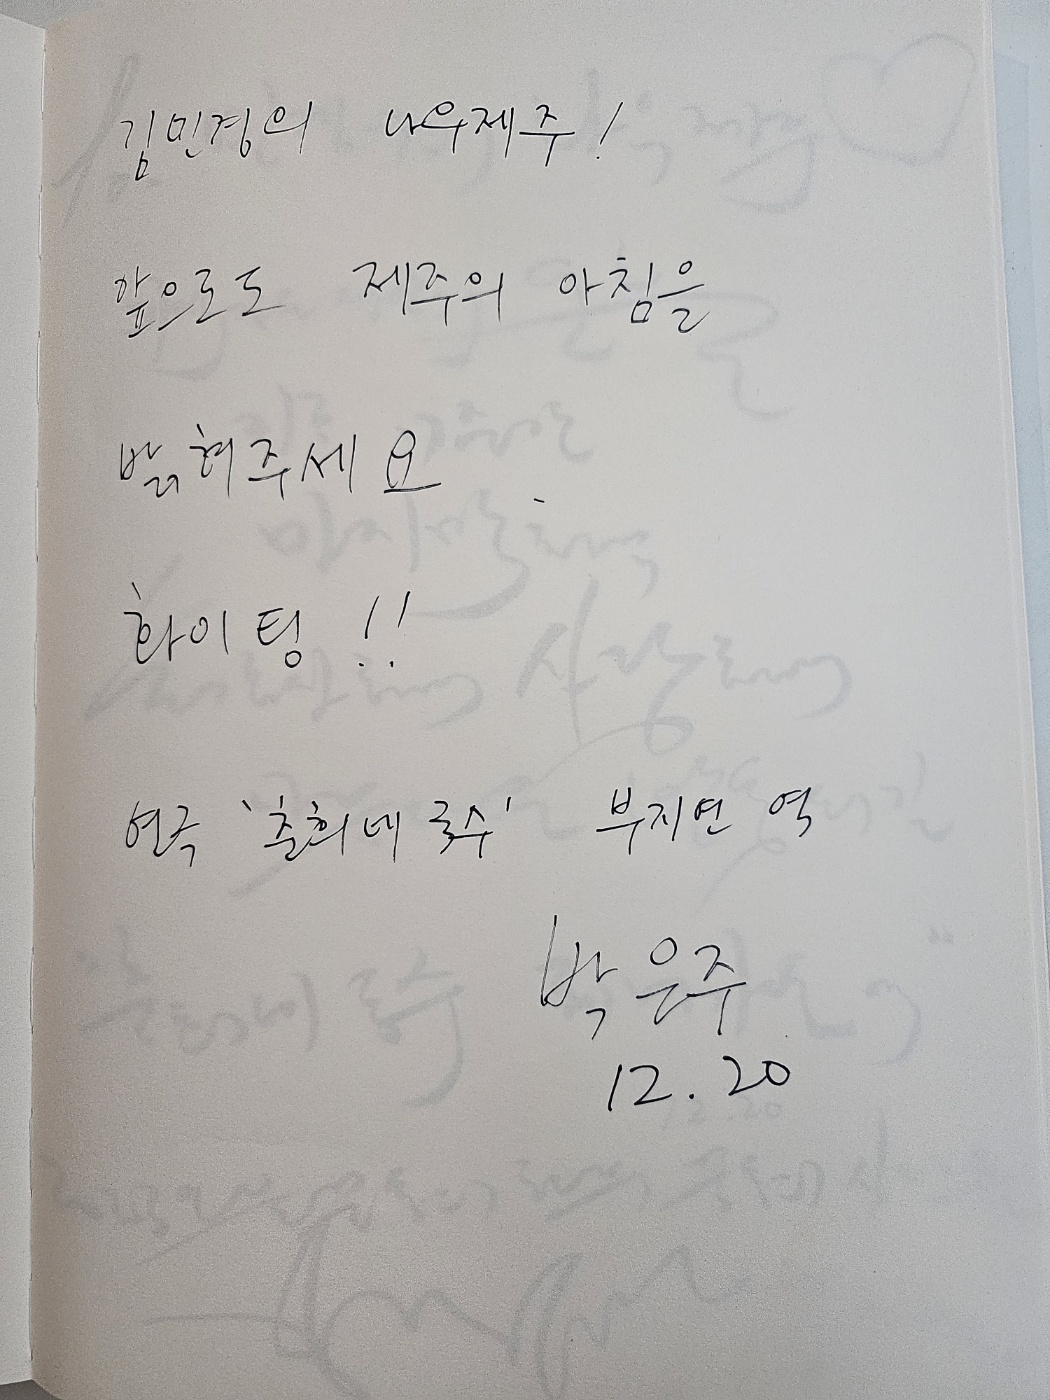 김민경의 나우제주!
앞으로도 제주의 아침을
밝혀주세요
화이팅!!
연극 '춘희네 국수' 부지연 역
박은주
12.20